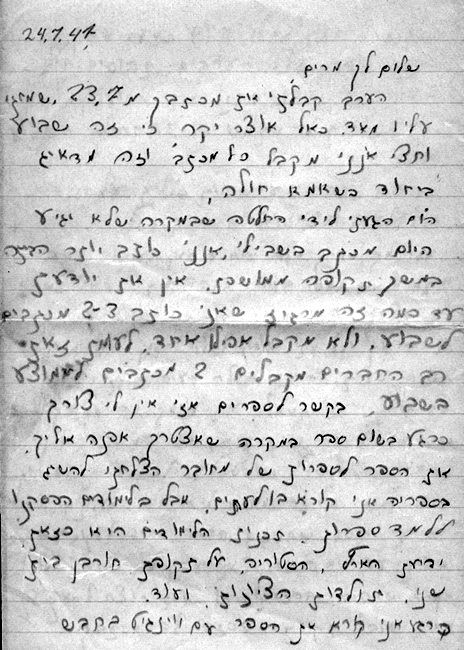 24.7.47
שלום לך מרים,
הערב קבלתי את מכתבך מ 23.7, שמחתי
עליו מאד כאל אוצר יקר כי זה שבוע
וחצי אינני מקבל כל מכתב וזה מדאיג
ביחוד כשאמא חולה,
היום הגעתי לידי החלטה שבמקרה שלא יגיע
היום מכתב בשבילי, אינני כותב יותר הביתה
במשך תקופה ממושכת. אין את יודעת
עד כמה זה מרגיז שאני כותב 2-3 מכתבים
לשבוע, ולא מקבל אפילו אחד. לעומת זאת
רב החברים מקבלים 2 מכתבים לממוצע
בשבוע. בקשר לספרים אזי אין לי צורך
כרגע בשום ספר במקרה שאצטרך אפנה אליך.
את הספר לספרות של מחובר הצלחתי להשיג
בספריה אני קורא בו לעתים, אבל בלימודים הפסקנו
ללמד ספרות. תכנית הלימודים היא כזאת.
ידיעת הארץ, הסטוריה על תקופת חורבן בית
שני, תולדות הציונות ועוד.
כרגע אני קורא את הספר עם ווינגיט בחבש